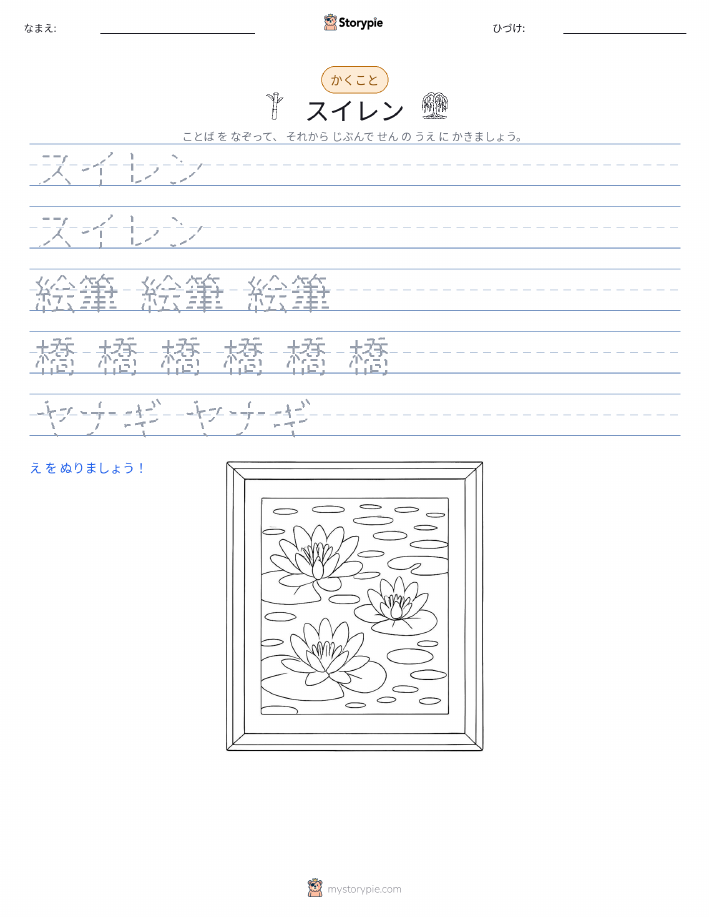 なまえ:
Storypie
ひづけ:
かくこと
スイレン
ことば を なぞって、 それから じぶんで せん の うえ に かきましょう。
スイレン
スイレン
絵筆 絵筆 絵筆
橋 橋 橋 橋 橋 橋
ヤナギ ヤナギ
え を ぬりましょう！
mystorypie.com